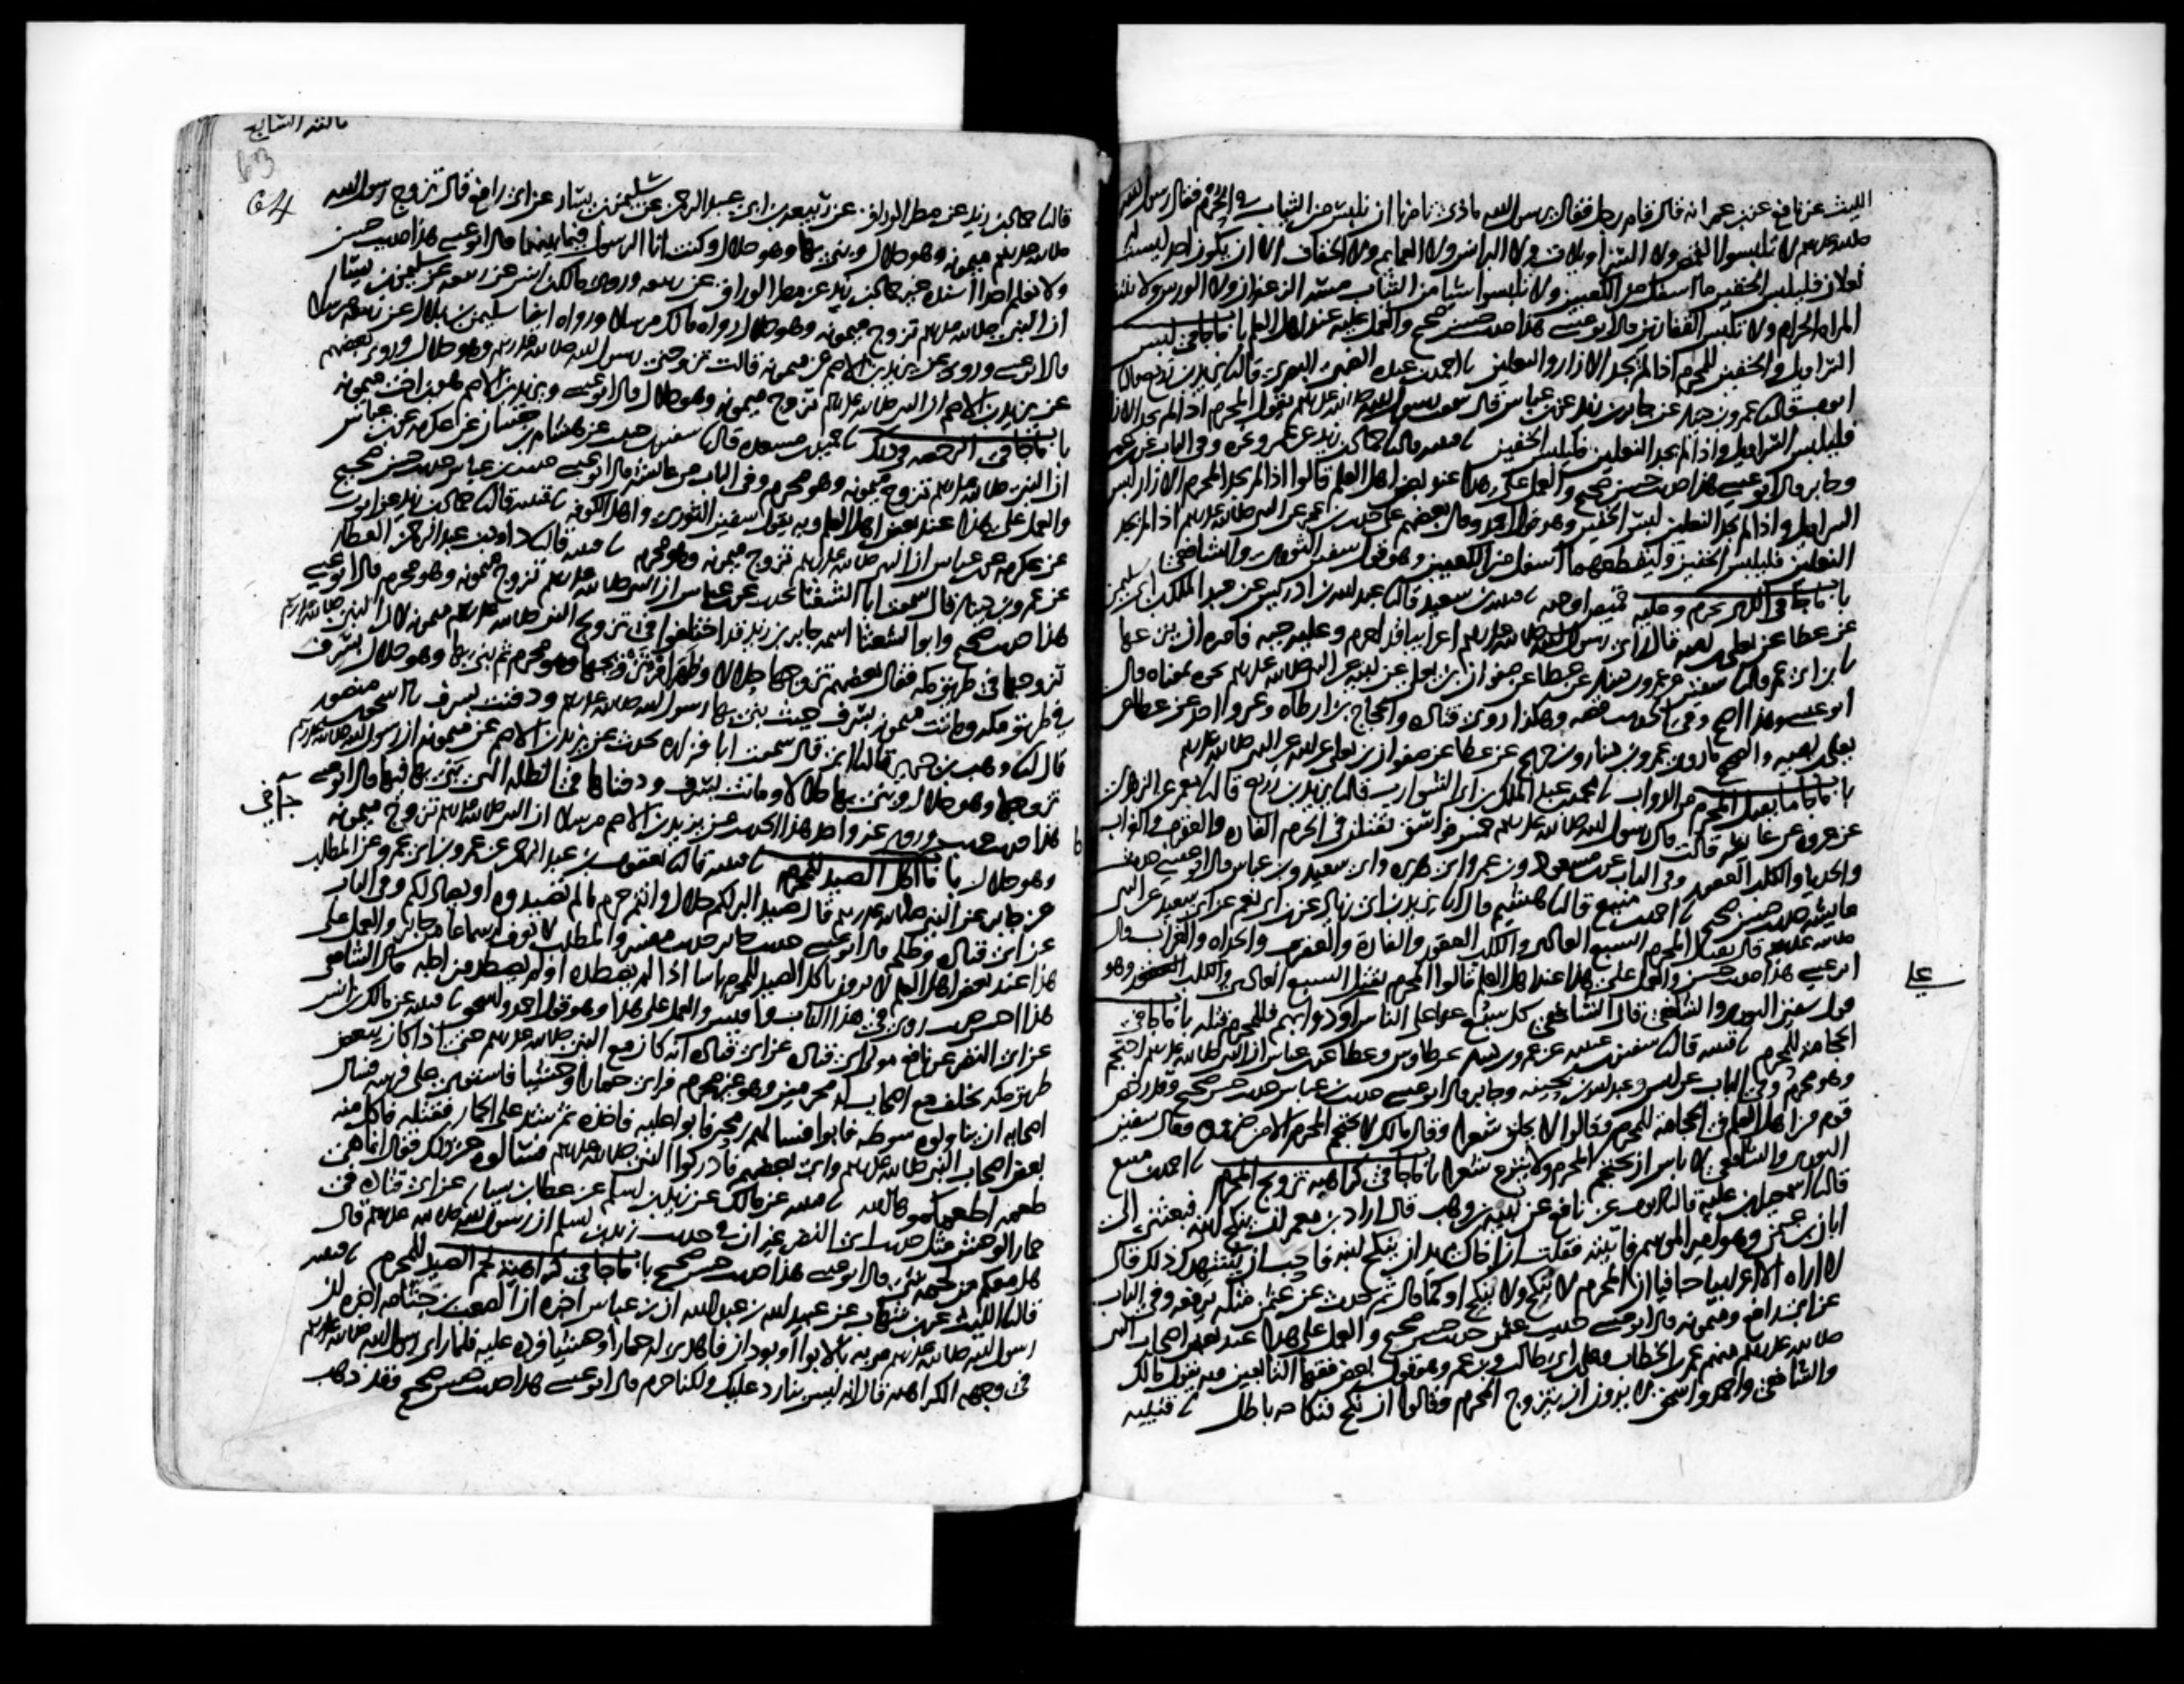 الليث عن نافع عن بن عمر انه قال قام رجل فقال يرسول الله ماذى تامرنا ان نلبس من الثياب في الحرم فقال رسول الله
صلى الله عليه وسلم لا تلبسوا القمص ولا السراويلات ولا البرانس ولا العمايم ولا الخفاف الا ان يكون احد ليست له
نعلان فليلبس الخفين ما اسفل من الكعبين ولا تلبسوا شيا من الثياب مسه الزعفران ولا الورس ولا تنتقب
المراه الحرام ولا تلبس القفازين قال ابو عيسى هذا حديث حسن صحيح والعمل عليه عند اهل العلم باب ما جا في لبس
السراويل والخفين للمحرم اذا لم يجد الازار والنعلين نا احمد بن عبده الضبي البصري قال نا يزيد بن زريع قال نا
ايوب قال نا عمرو بن دينار عن جابر بن زيد عن بن عباس قال سمعت رسول الله صلى الله عليه وسلم يقول المحرم اذا لم يجد الازار
فليلبس السراويل واذا لم يجد النعلين فليلبس الخفين نا قتيبة قال نا حماد بن زيد عن عمرو نحوه وفي الباب عن بن عمر
وجابر قال ابو عيسى هذا حديث حسن صحيح والعمل على هذا عند بعض اهل العلم قالوا اذا لم يجد المحرم الازار لبس
السراويل واذا لم يجد النعلين لبس الخفين وهو قول احمد وقال بعضهم على حديث بن عمر عن النبي صلى الله عليه وسلم اذا لم يجد
النعلين فليلبس الخفين وليقطعهما اسفل من الكعبين وهو قول سفين الثوري والشافعي
باب ما جا في الذي يحرم وعليه قميص او جبه نا قتيبة بن سعيد قال نا عبد الله بن ادريس عن عبد الملك بن ابي سليمن
عن عطا عن يعلى بن اميه قال راى رسول الله صلى الله عليه وسلم اعرابيا قد احرم وعليه جبه فامره ان ينزعها
نا بن ابي عمر قال نا سفين عن عمرو بن دينار عن عطا عن صفوان بن يعلى عن ابيه عن النبي صلى الله عليه وسلم نحوه بمعناه قال
ابو عيسى وهذا اصح وفي الحديث قصه وهكذا روى قتاده والحجاج بن ارطاه وغير واحد عن عطا عن
يعلى بن اميه والصحيح ما روى عمرو بن دينار وبن جريج عن عطا عن صفوان بن يعلى عن ابيه عن النبي صلى الله عليه وسلم
باب ما جا ما يقتل المحرم من الدواب نا محمد بن عبد الملك بن ابي الشوارب قال نا يزيد بن زريع قال نا معمر عن الزهري
عن عروه عن عايشه قالت قال رسول الله صلى الله عليه وسلم خمس فواسق يقتلن في الحرم الفاره والعقرب والغراب
والحديا والكلب العقور وفي الباب عن بن مسعود وبن عمر وابي هريره وابي سعيد وبن عباس قال ابو عيسى حديث
عايشه حديث حسن صحيح نا احمد بن منيع قال نا هشيم قال انا يزيد بن ابي زياد عن بن ابي نعم عن ابي سعيد عن النبي
صلى الله عليه وسلم قال يقتل المحرم السبع العادي والكلب العقور والفارة والعقرب والحداه والغراب قال
ابو عيسى هذا حديث حسن والعمل على هذا عند اهل العلم قالوا المحرم يقتل السبع العادي والكلب العقور وهو
قول سفين الثوري والشافعي قال الشافعي كل سبع عدا على الناس او دوابهم فللمحرم قتله باب ما جا في
الحجامه للمحرم نا قتيبة قال نا سفين بن عيينه عن عمرو بن دينار عن طاوس وعطا عن بن عباس ان النبي صلى الله عليه وسلم احتجم
وهو محرم وفي الباب عن انس وعبد الله بن بحينه وجابر قال ابو عيسى حديث بن عباس حديث حسن صحيح وقد رخص
قوم من اهل العلم في الحجامه للمحرم وقالوا لا يحلق شعرا وقال مالك لا يحتجم المحرم الا من ضروره وقال سفين
الثوري والشافعي لا باس ان يحتجم المحرم ولا ينزع شعرا باب ما جا في كراهيه تزويج المحرم نا احمد بن منيع
قال نا اسمعيل بن علية قال نا ايوب عن نافع عن نبيه بن وهب قال اراد بن معمر ان ينكح ابنه فبعثني الى
ابان بن عثمن وهو امير الموسم فاتيته فقلت ان اخاك يريد ان ينكح ابنه فاحب ان يشهدك ذلك قال
لا اراه الا اعرابيا جافيا ان المحرم لا ينكح ولا ينكح او كما قال ثم حدث عن عثمن مثله يرفعه وفي الباب
عن ابي رافع وميمونه قال ابو عيسى حديث عثمن حديث حسن صحيح والعمل على هذا عند بعض اصحاب النبي
صلى الله عليه وسلم منهم عمر بن الخطاب وعلي بن ابي طالب وبن عمر وهو قول بعض فقها التابعين وبه يقول مالك
والشافعي واحمد واسحق لا يرون ان يتزوج المحرم وقالوا ان نكح فنكاحه باطل نا قتيبه
64
قال نا حماد بن زيد عن مطر الوراق عن ربيعه بن ابي عبد الرحمن عن سليمن بن يسار عن ابي رافع قال تزوج رسول الله
صلى الله عليه وسلم ميمونه وهو حلال وبنى بها وهو حلال وكنت انا الرسول فيما بينهما قال ابو عيسى هذا حديث حسن
ولا نعلم احدا اسنده غير حماد بن زيد عن مطر الوراق عن ربيعه وروى مالك بن انس عن ربيعه عن سليمن بن يسار
ان النبي صلى الله عليه وسلم تزوج ميمونه وهو حلال رواه مالك مرسلا ورواه ايضا سليمن بن بلال عن ربيعه مرسلا
قال ابو عيسى وروي عن يزيد بن الاصم عن ميمونه قالت تزوجني رسول الله صلى الله عليه وسلم وهو حلال وروى بعضهم
عن يزيد بن الاصم ان النبي صلى الله عليه وسلم تزوج ميمونه وهو حلال قال ابو عيسى ويزيد بن الاصم هو بن اخت ميمونه
باب ما جا في الرخصه في ذلك نا حميد بن مسعده قال نا سفين بن حبيب عن هشام بن حسان عن عكرمه عن بن عباس
ان النبي صلى الله عليه وسلم تزوج ميمونه وهو محرم وفي الباب عن عايشه قال ابو عيسى حديث بن عباس حديث حسن صحيح
والعمل على هذا عند بعض اهل العلم وبه يقول سفين الثوري واهل الكوفه نا قتيبه قال نا حماد بن زيد عن ايوب
عن عكرمه عن بن عباس ان النبي صلى الله عليه وسلم تزوج ميمونه وهو محرم نا قتيبه قال نا داود بن عبد الرحمن العطار
عن عمرو بن دينار قال سمعت ابا الشعثا يحدث عن بن عباس ان النبي صلى الله عليه وسلم تزوج ميمونه وهو محرم قال ابو عيسى
هذا حديث صحيح وابو الشعثا اسمه جابر بن زيد قد اختلفوا في تزويج النبي صلى الله عليه وسلم ميمونه لان النبي صلى الله عليه وسلم
تزوجها في طريق مكه فقال بعضهم تزوجها حلالا وظهر امر تزويجها وهو محرم ثم بنى بها وهو حلال بسرف
في طريق مكه وماتت ميمونه بسرف حيث بنى بها رسول الله صلى الله عليه وسلم ودفنت بسرف نا اسحق بن منصور
قال نا وهب بن جرير قال نا ابي قال سمعت ابا فزاره يحدث عن يزيد بن الاصم عن ميمونه ان رسول الله صلى الله عليه وسلم
تزوجها وهو حلال وبنى بها حلالا وماتت بسرف ودفناها في الظله التي بنى بها فيها قال ابو عيسى
هذا حديث غريب وروى غير واحد هذا الحديث عن يزيد بن الاصم مرسلا ان النبي صلى الله عليه وسلم تزوج ميمونه
وهو حلال باب ما جا اكل الصيد للمحرم نا قتيبه قال نا يعقوب بن عبد الرحمن عن عمرو بن ابي عمرو عن المطلب
عن جابر عن النبي صلى الله عليه وسلم قال صيد البر لكم حلال وانتم حرم ما لم تصيدوه او يصاد لكم وفي الباب
عن ابي قتاده وطلحه قال ابو عيسى حديث جابر حديث مفسر والمطلب لا نعرف له سماعا من جابر والعمل على
هذا عند بعض اهل العلم لا يرون باكل الصيد للمحرم باسا اذا لم يصطده او لم يصطد من اجله قال الشافعي
هذا احسن حديث روي في هذا الباب واقيس والعمل على هذا وهو قول احمد واسحق نا قتيبه عن مالك بن انس
عن ابي النضر عن نافع مولى ابي قتاده عن ابي قتاده انه كان مع النبي صلى الله عليه وسلم حتى اذا كان ببعض
طريق مكه تخلف مع اصحاب له محرمين وهو غير محرم فراى حمارا وحشيا فاستوى على فرسه فسال
اصحابه ان يناولوه سوطه فابوا فسالهم رمحه فابوا عليه فاخذه ثم شد على الحمار فقتله فاكل منه
بعض اصحاب النبي صلى الله عليه وسلم وابى بعضهم فادركوا النبي صلى الله عليه وسلم فسالوه عن ذلك فقال انما هي
طعمه اطعمكموها الله نا قتيبه عن مالك عن زيد بن اسلم عن عطا بن يسار عن ابي قتاده في
حمار الوحش مثل حديث ابي النضر غير ان في حديث زيد بن اسلم ان رسول الله صلى الله عليه وسلم قال
هل معكم من لحمه شي قال ابو عيسى هذا حديث حسن صحيح باب ما جا في كراهية لحم الصيد للمحرم نا قتيبه
قال نا الليث عن بن شهاب عن عبيد الله بن عبد الله ان بن عباس اخبره ان الصعب بن جثامه اخبره ان
رسول الله صلى الله عليه وسلم مر به بالابوا او بودان فاهدى له حمارا وحشيا فرده عليه فلما راى رسول الله صلى الله عليه وسلم
في وجهه الكراهيه قال انه ليس بنا رد عليك ولكنا حرم قال ابو عيسى هذا حديث حسن صحيح وقد ذهب